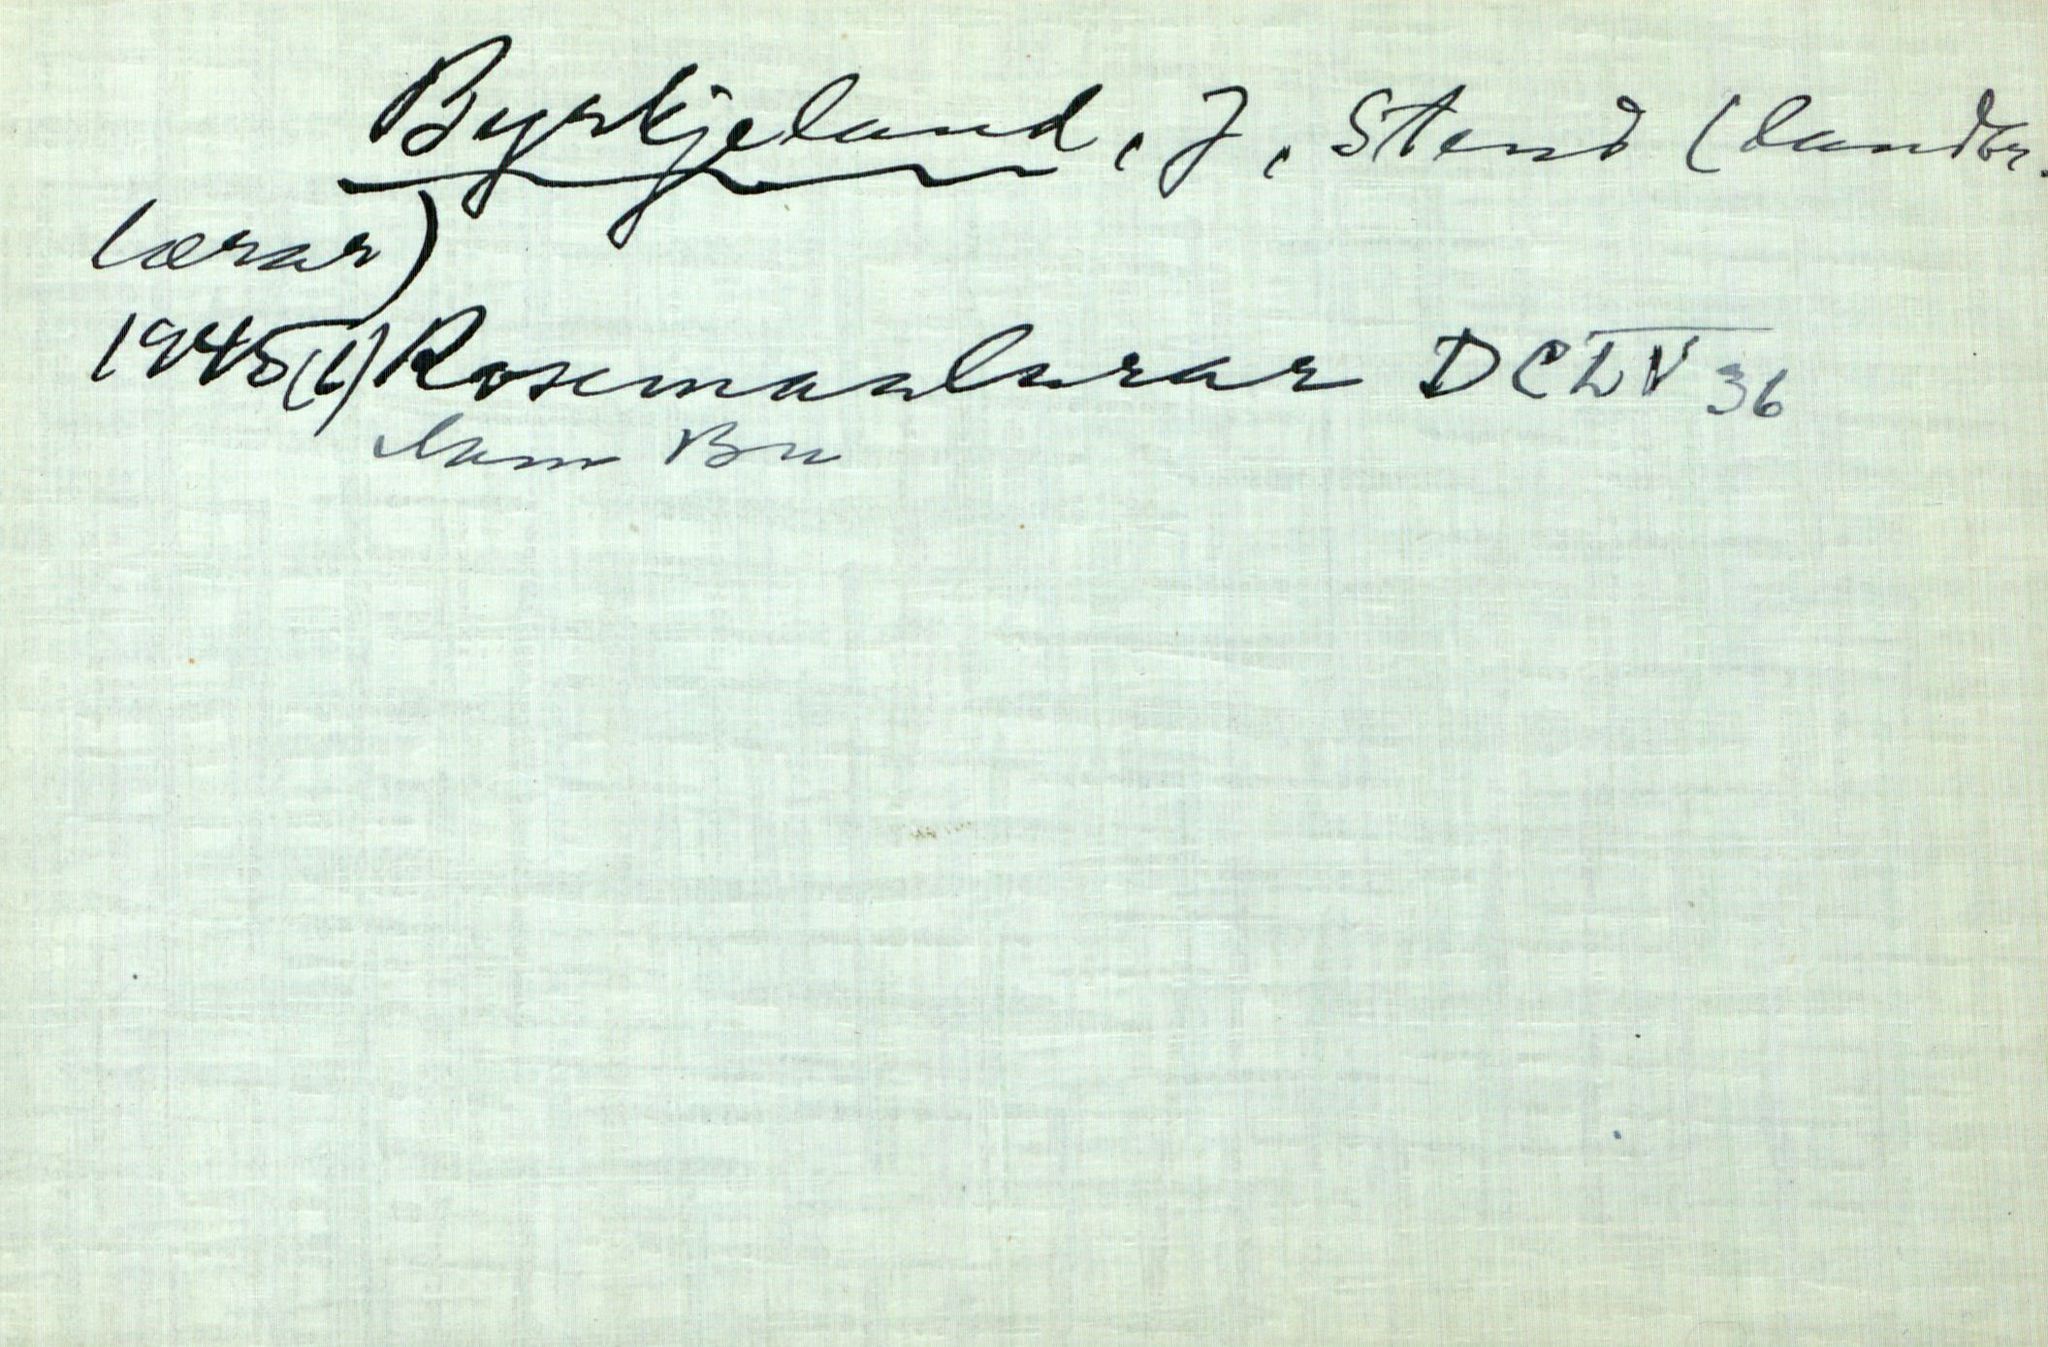 Byrkjeland, J, Stend (landbr.
lærar)
1945(1) Rosemaalarar DCLV 36